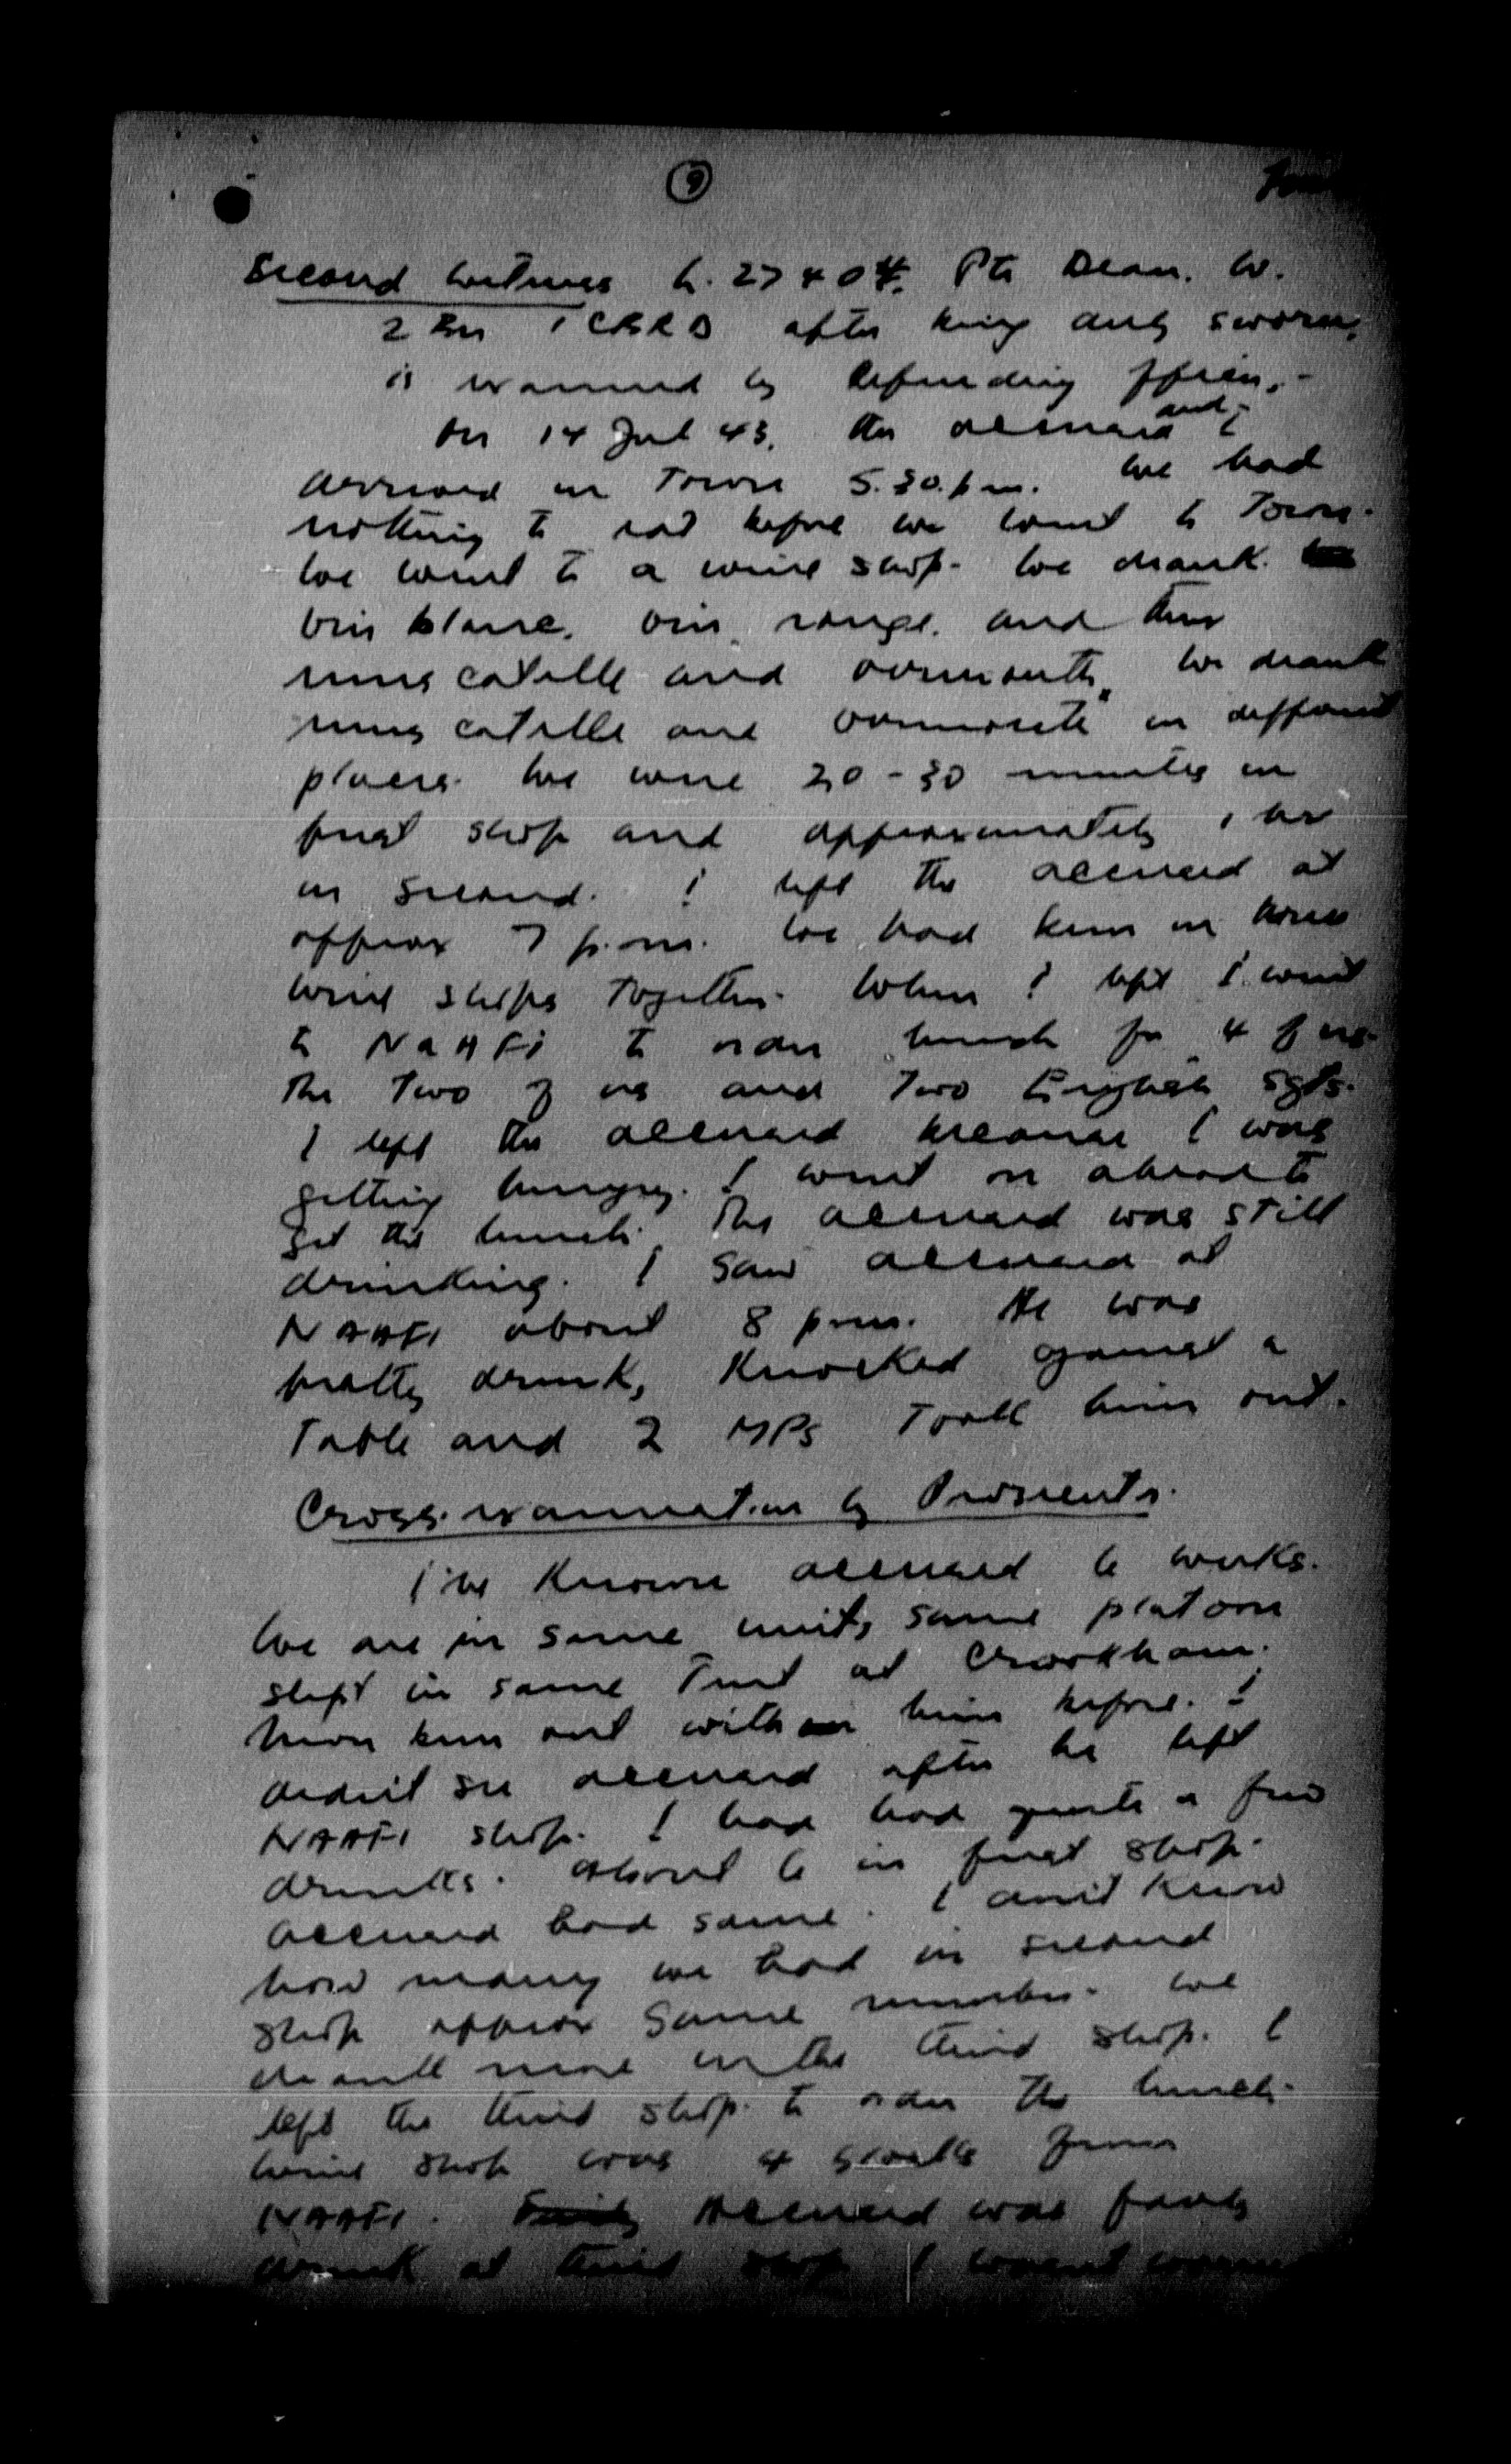 9
Second Witness L. 27404. Pte Dean. W.
2 Bn 1 CBRD after being duly sworn,
is examined by Defending Officer.-
On 14 Jul 43. the accused and I
arrived in Town 5.30.pm. We had
nothing to eat before we went to Town.
We went to a wine shop. We drank
vin blanc, vin rouge. and then
muscatelle and vermouth. We drank
muscatelle and vermouth in different
places. We were 20-30 minutes in
first shop and approximately 1 hr
in second. I left the accused at
approx 7 p.m. We had been in three
wine shops together. When I left I went
to NAAFI to order lunch for 4 of us.
The two of us and two English Sgts.
I left the accused because I was
getting hungry. I went on ahead to
get the lunch. The accused was still
drinking. I saw accused at
NAAFI about 8 pm. He was
pretty drunk, knocked against a
table and 2 MPs took him out.
Cross. examination by Prosecutor.
I've known accused 6 weeks.
We are in same unit, same platoon
slept in same tent at Crookham.
have been out with him before. I
didn't see accused after he left
NAAFI shop. I had had quite a few
drinks. About 6 in first shop.
Accused had same. I don't know
how many we had in second
shop approx same number. We
drank more in the third shop. I
left the third shop to order the lunch.
Wine shop was 4 blocks from
NAAFI. Accused was fairly
drunk at third shop I wasn't